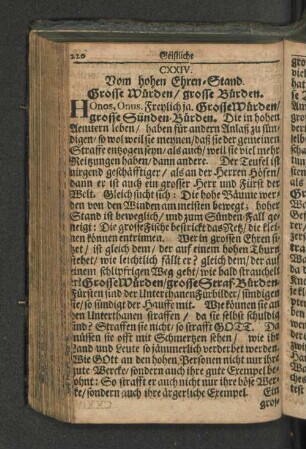 220 Geistliche
CXXIV.
Vom hohen Ehren-Stand.
Grosse Würden/ grosse Bürden.
Honos, Onus. Freylich ja. Grosse Würden/
grosse Sünden-Bürden. Die in hohen
Aemtern leben/ haben für andern Anlaß zu sün-
digen/ so wol weil sie meynen/ daß sie der gemeinen
Straffe entzogen seyn/ als auch/ weil sie viel mehr
Reitzungen haben/ dann andere. Der Teufel ist
nirgend geschäfftiger/ als an der Herren Höfen/
dann er ist auch ein grosser Herr und Fürst der
Welt. Gleich sucht sich: Die hohe Bäume wer-
den von den Winden am meisten bewegt: hoher
Stand ist beweglich/ und zum Sünden-Fall ge-
neigt: Die grosse Fische bestrickt das Netz/ die klei-
nen können entrinnen. Wer in grossen Ehren si-
tzet/ ist gleich dem/ der auf einem hohen Thurn
stehet/ wie leichtlich fällt er? gleich dem/ der auf
einem schlipfrigen Weg geht/ wie bald strauchelt
er? Grosse Würden/ grosse Straf-Bürden.
Fürsten sind der Unterthanen Fürbilder/ sündigen
sie/ so sündigt der Hauffe mit. Wie können sie an
den Unterthanen straffen/ da sie selbst schuldig
sind? Straffen sie nicht/ so strafft GOTT. Da
müssen sie offt mit Schmertzen sehen/ wie ihr
Land und Leute so jämmerlich verderbet werden.
Wie GOtt an den hohen Personen nicht nur ihre
gute Wercke/ sondern auch ihr gute Exempel be-
lohnt: So strafft er auch nicht nur ihre böse Wer-
cke/ sondern auch ihre ärgerliche Exempel. Ein
grosse